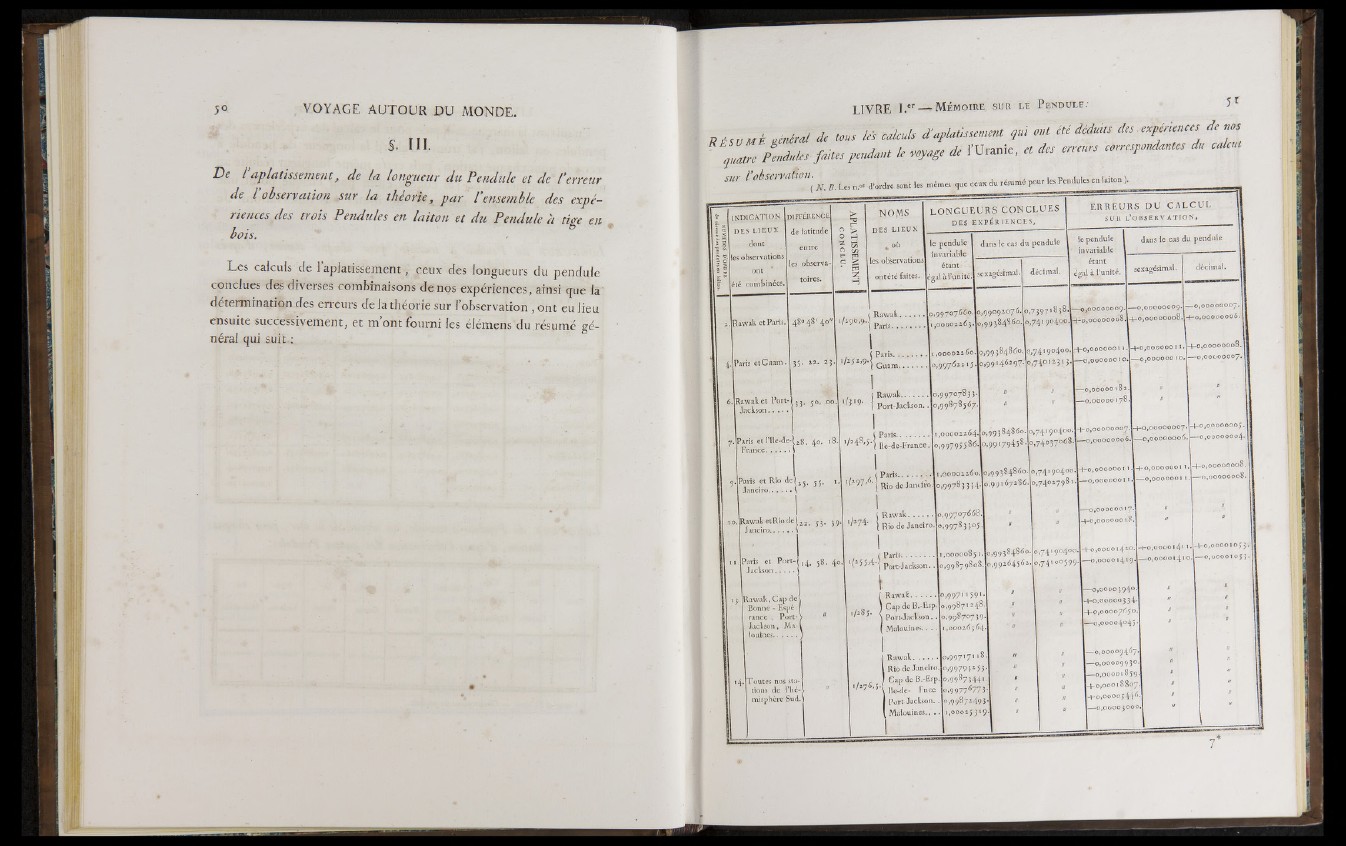 50 VOYAGE AUTOUR DU MONDE.
§. III.
De l'aplatissement, de la longueur du Pendule et de l'erreur
de l'observation sur la théorie, par l'ensemble des expé-
riences des trois Pendules en laiton et du Pendule à tige en
bois.
Les calculs de l'aplatissement, ceux des longueurs du pendule
conclues des diverses combinaisons de nos expériences, ainsi que la
détermination des erreurs de la théorie sur l'observation, ont eu lieu
ensuite successivement, et m'ont fourni les élémens du résumé gé-
néral qui suit :
LIVRE I.er — MÉMOIRE SUR LE PENDULE. 51
RÉSUMÉ général de tous les calculs d'aplatissement qui ont été déduits des expériences de nos
quatre Pendules faites pendant le voyage de l'Uranie, et des erreurs correspondantes du calcul
sur l'observation.
( N. B. Les n.os d'ordre sont les mêmes que ceux du résumé pour les Pendules en laiton ).
INDICATION DES LIEUX dont les observations ont été combinées.
DIFFÉRENCE de latitude entre les observa- toires.
APLATISSEMENT CONCLU.
NOMS DES LIEUX où les observations ont été faites.
LONGUEURS CONCLUES DES EXPÉRIENCES,
le pendule invariable étant égal à l'unité.
dans le cas du pendule
sexagésimal. décimal.
ERREURS DU CALCUL SUR L'OBSERVATION,
le pendule invariable étant égal à l'unité.
dans le cas du pendule
sexagésimal. décimal.
2. Rawak et Paris. 48° 48' 40" 1/290,9. Rawak 0,99707660. 0,99092076. 0,73971838. —0,00000009. —0,00000009. —0,00000007.
Paris 1,00002263. 0,99384860. 0,74190400. +0,00000008. +0,00000008. +0,00000006.
4. Paris et Guam. 35. 22. 23. 1/252,9. Paris 1,00002260. 0,99384860. 0,74190400. +0,00000011. +0,00000011. +0,00000008.
Guam 0,99762115. 0,99146297. 0,74012313. —0,00000010. —0,00000010. —0,00000007.
6. Rawak et Port- Jackson 33. 50. 00. 1/319. Rawak 0,99707833. " " —0,00000182. " "
Port-Jackson. 0,99878567. " " —0,00000178. " "
7. Paris et l'Ile-de- France 28. 40. 18. 1/248,5. Paris 1,00002264. 0,99384860. 0,74190400. +0,00000007. +0,00000007. +0,00000005.
Ile-de-France. 0,99795586. 0,99179438. 0,74037068. —0,00000006. —0,00000006. —0,00000004.
9. Paris et Rio de Janeiro 25. 55. 1. 1/297,6. Paris 1,00002260. 0,99384860. 0,74190400. +0,00000011. +0,00000011. +0,00000008.
Rio de Janeiro 0,99783314. 0,99167286. 0,74027981. —0,00000011. —0,00000011. —0,00000008.
10. Rawak et Rio de Janeiro 22. 53. 59. 1/274. Rawak 0,99707668. " " —0,00000017. " "
Rio de Janeiro. 0,99783305. " " +0,00000018. " "
11. Paris et Port- Jackson 14. 58. 40. 1/255,4. Paris 1,00000851. 0,99384860. 0,74190400. +0,00001420. +0,00001411. +0,00001053.
Port-Jackson. 0,99879808. 0,99264362. 0,74100599. —0,00001419. —0,00001410. —0,00001053.
13. Rawak, Cap de Bonne-Espé- rance, Port- Jackson, Ma- louines " 1/283. Rawak 0,99711591. " " —0,00003940. " "
Cap de B.-Esp. 0,99871248. " " +0,00000334. " "
Port-Jackson. 0,99870739. " " +0,00007650. " "
Malouines. 1,00026564. " " —0,00004045. " "
14. Toutes nos sta- tions de l'hé- misphère Sud. " 1/276,5. Rawak 0,99717118. " " —0,00009467. " "
Rio de Janeiro. 0,99793255. " " —0,00009930. " "
Cap de B.-Esp. 0,99873441. " " —0,00001859. " "
Ile-de-France 0,99776773. " " +0,00018807. " "
Port-Jackson. 0,99872493. " " +0,00005446. " "
Malouines. 1,00025319. " " —0,00003000. " "
7*